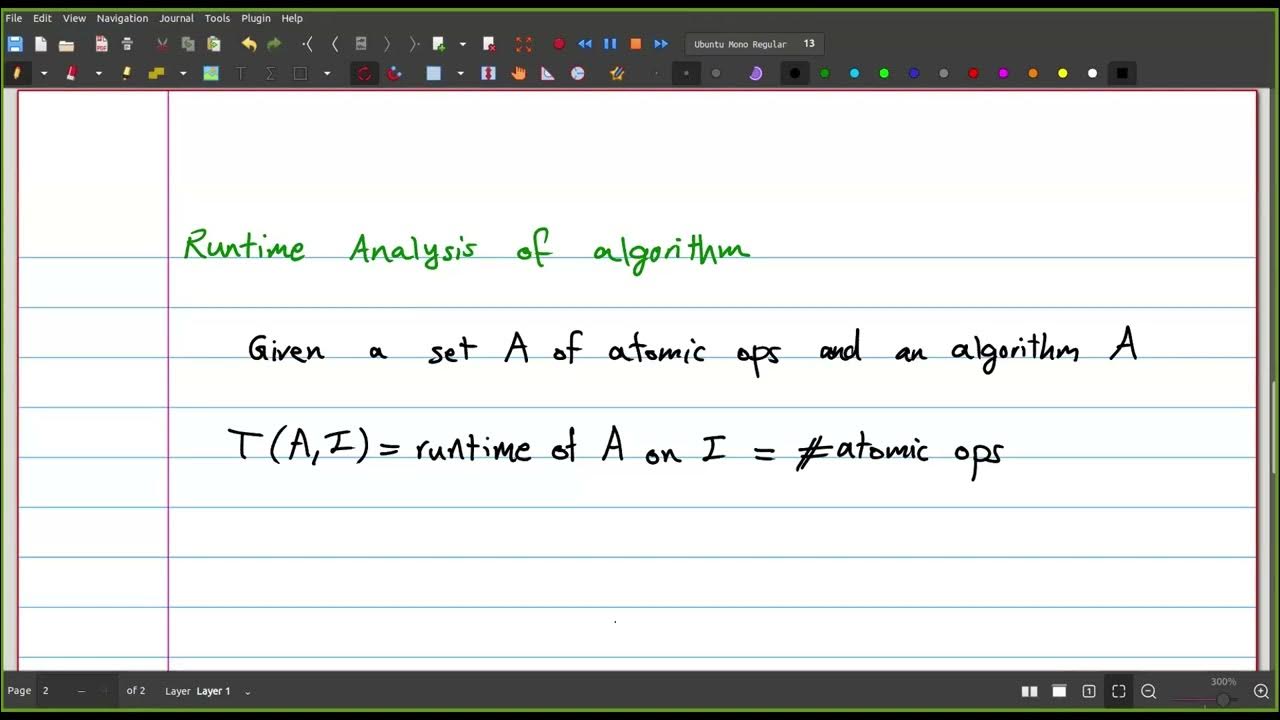 File Edit View Navigation Journal Tools Plugin Help
Ubuntu Mono Regular 13
Runtime Analysis of algorithm
Given a set A of atomic ops and an algorithm A
T(A,I) = runtime of A on I = #atomic ops
Page 2 of 2 Layer Layer 1 300%